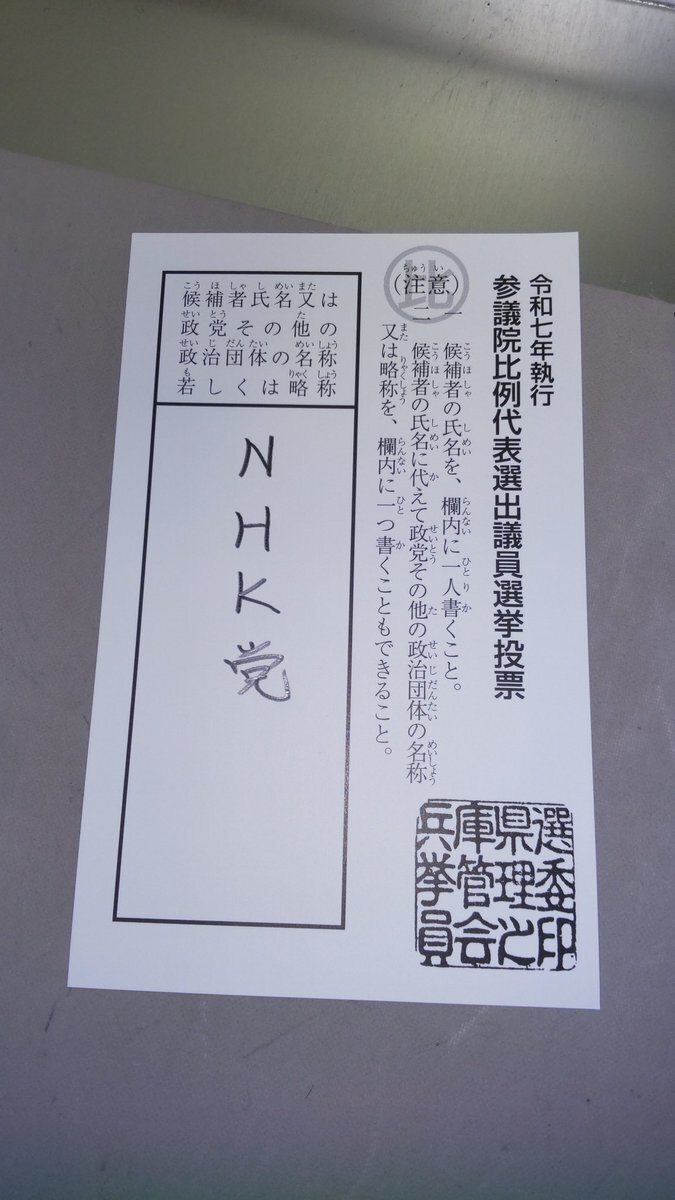 令和七年執行
参議院比例代表選出議員選挙投票
比
(注意)
一 候補者の氏名を、欄内に一人書くこと。
二 候補者の氏名に代えて政党その他の政治団体の名称
又は略称を、欄内に一つ書くこともできること。
候補者氏名又は
政党その他の
政治団体の名称
若しくは略称
NHK党
兵庫県選
挙管理委
員会之印